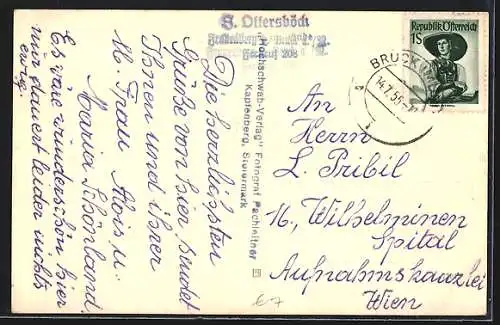 S. Ottersböck
Fernruf 208
Die herzlichsten
Grüße von hier sendet
Ihnen und ihrer
W. Frau Alois u.
Maria Schönland.
Es wäre wunderschön hier
nur dauert leider nichts
ewig.
"Hochschwab-Verlag" Fotograf Pachleitner
Kapfenberg, Steiermark
Republik Österreich
1S
BRUCK
14.7.55
An
Herrn
L. Pribil
Wilhelminen
Spital
Aufnahmskanzlei
Wien